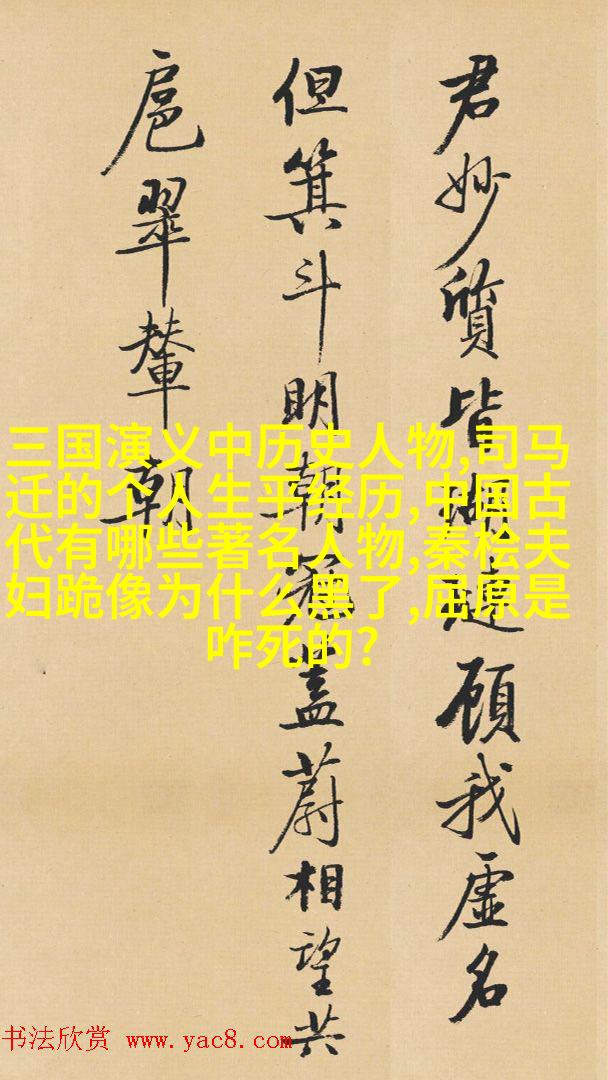 君妙质皆瑚琏顾我虚名
但箕斗明朝冠盖蔚相望共
扈翠辇朝
三国演义中历史人物,司马
迁的个人生平经历,中国古
代有哪些著名人物,秦桧夫
妇跪像为什么黑了,屈原是
咋死的?
书法欣赏 www.yac8.com